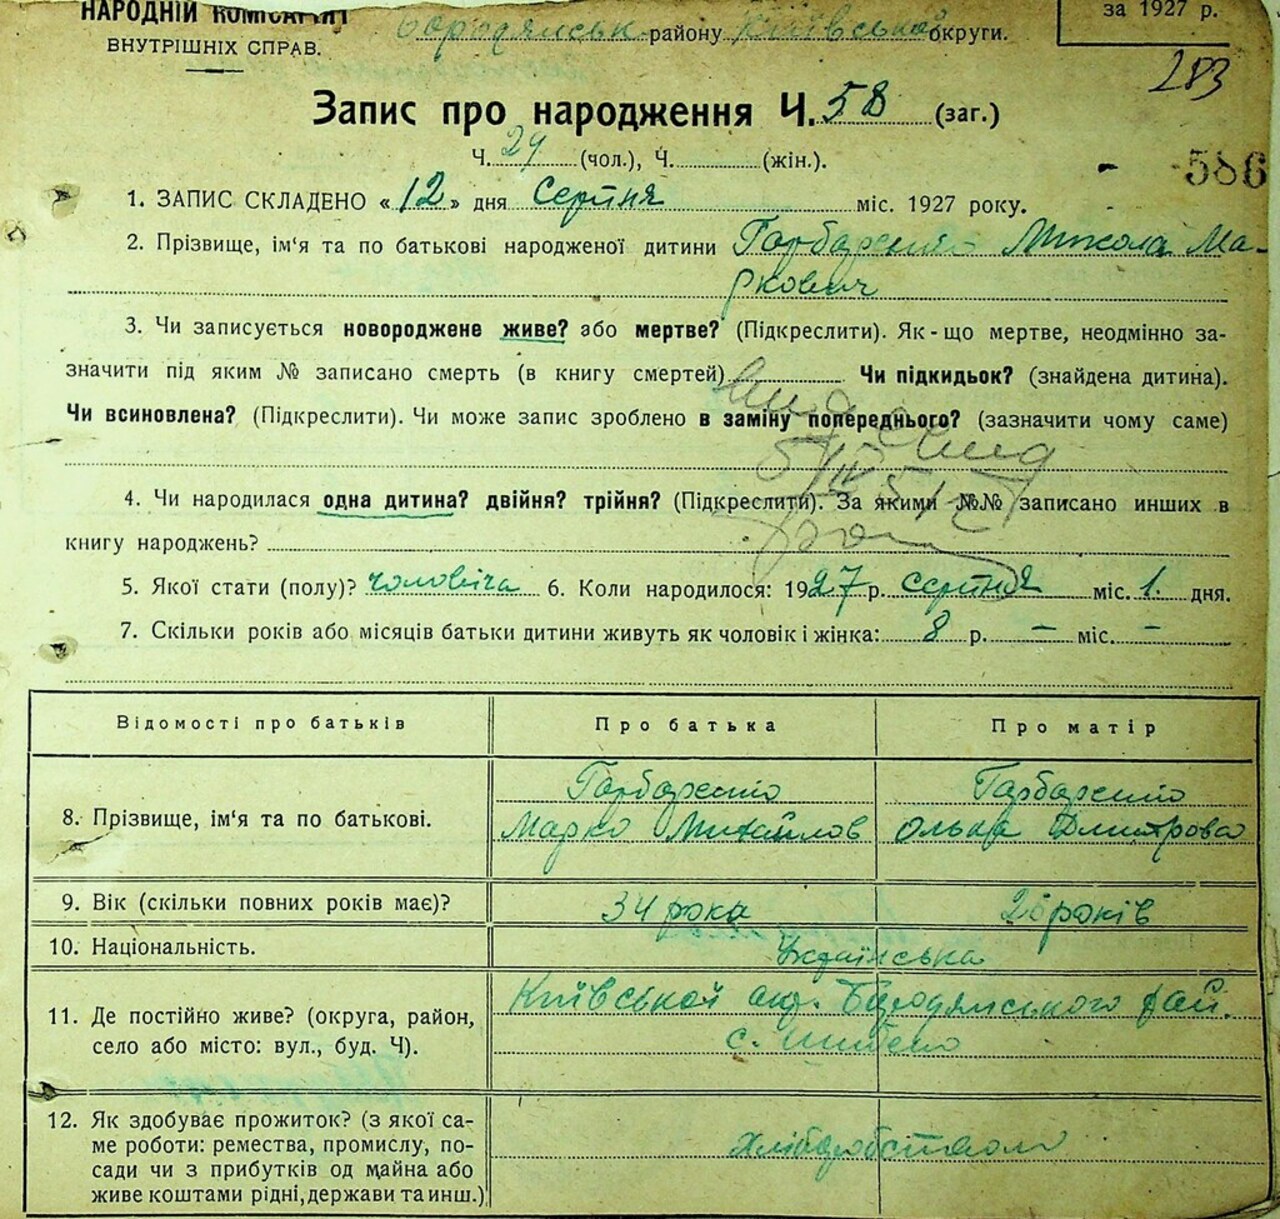 НАРОДНІЙ КОМІСАРІЯТ
ВНУТРІШНІХ СПРАВ.
Бородянськ району Київської округи.
за 1927 р.
283
Запис про народження Ч. 58 (заг.)
Ч. 29 (чол.), Ч. (жін.).
586
1. ЗАПИС СКЛАДЕНО « 12 » дня Серпня міс. 1927 року.
2. Прізвище, ім'я та по батькові народженої дитини Гарбаренко Микола Ма-
ркович
3. Чи записується новороджене живе? або мертве? (Підкреслити). Як-що мертве, неодмінно за-
значити під яким № записано смерть (в книгу смертей) Чи підкидьок? (знайдена дитина).
Чи всиновлена? (Підкреслити). Чи може запис зроблено в заміну попереднього? (зазначити чому саме)
4. Чи народилася одна дитина? двійня? трійня? (Підкреслити). За якими №№ записано инших в
книгу народжень?
5. Якої стати (полу)? чоловіча 6. Коли народилося: 1927 р. серпня міс. 1. дня.
7. Скільки років або місяців батьки дитини живуть як чоловік і жінка: 8 р. — міс. —
Відомості про батьків Про батька Про матір
8. Прізвище, ім'я та по батькові. Гарбаренко Гарбаренко
Марко Михайлов Ольга Дмитрова
9. Вік (скільки повних років має)? 34 рока 26 років
10. Національність. Українська
11. Де постійно живе? (округа, район,
село або місто: вул., буд. Ч). Київської окр. Бородянського рай.
с. Шибено
12. Як здобуває прожиток? (з якої са-
ме роботи: ремества, промислу, по-
сади чи з прибутків од майна або
живе коштами рідні, держави та инш.) Хліборобством